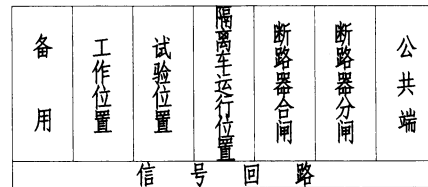 备用
工作位置
试验位置
隔离车运行位置
断路器合闸
断路器分闸
公共端
信号回路